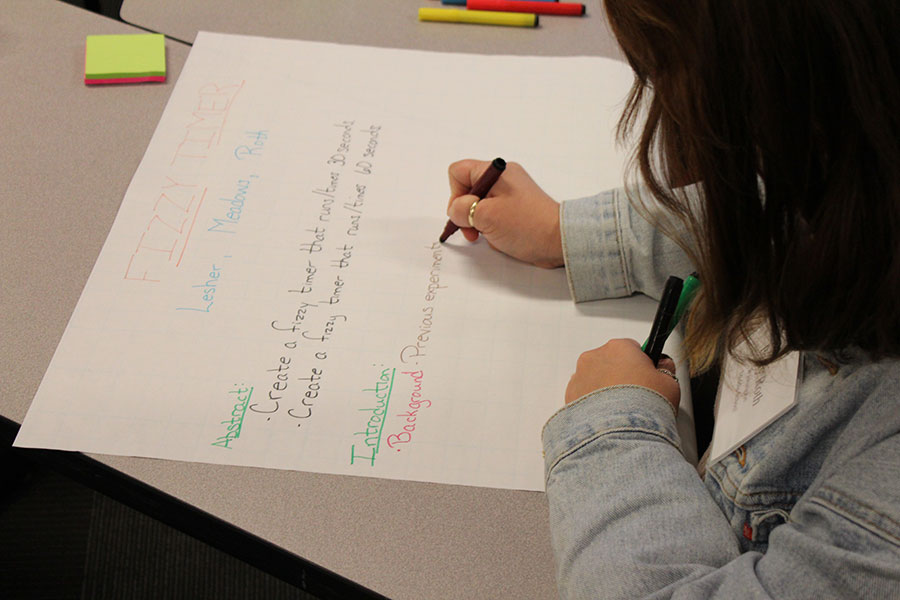 FIZZY TIMER
Lesher, Meadows, Roth
Abstract:
· Create a fizzy timer that runs/times 30 seconds
· Create a fizzy timer that runs/times 60 seconds
Introduction:
· Background · Previous experiment